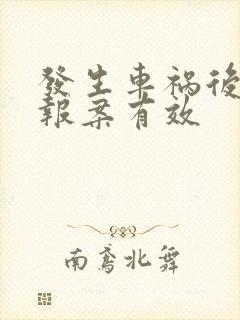 發生車禍後
報案有效
南鳶北舞